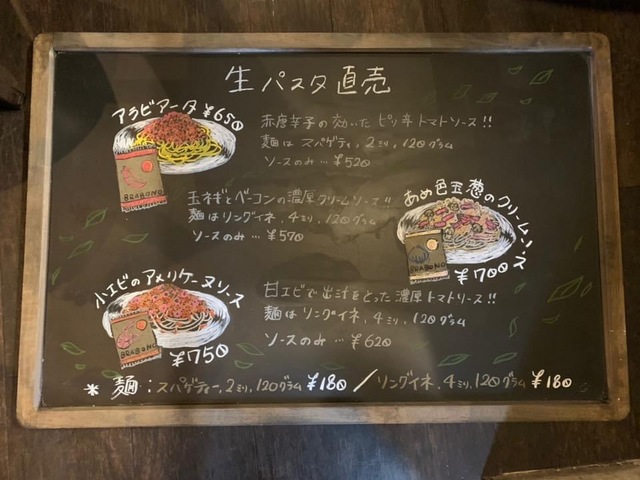 生パスタ直売
アラビアータ ¥650
BRABONO
赤唐辛子の効いた ピリ辛トマトソース!!
麺は スパゲティ, 2ミリ, 120グラム
ソースのみ… ¥520
玉ネギとベーコンの濃厚クリームソース!!
麺はリングイネ, 4ミリ, 120グラム
ソースのみ … ¥570
あめ色玉葱のクリームソース
BRABONO
¥700
小エビのアメリケーヌソース
BRABONO
¥750
甘エビで出汁をとった濃厚トマトソース!!
麺はリングイネ, 4ミリ, 120グラム
ソースのみ … ¥620
* 麺:スパゲティー, 2ミリ, 120グラム ¥180 / リングイネ, 4ミリ, 120グラム ¥180